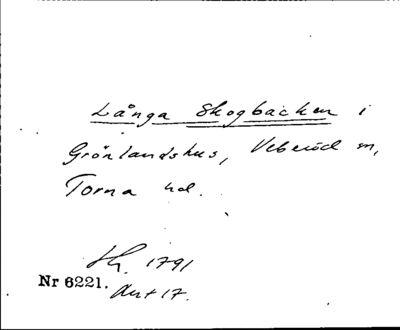 Långa Skogbacken i
Grönlandshus, Veberöd sn,
Torna hd.
Sk. 1791
Nr 6221.
Akt 17.